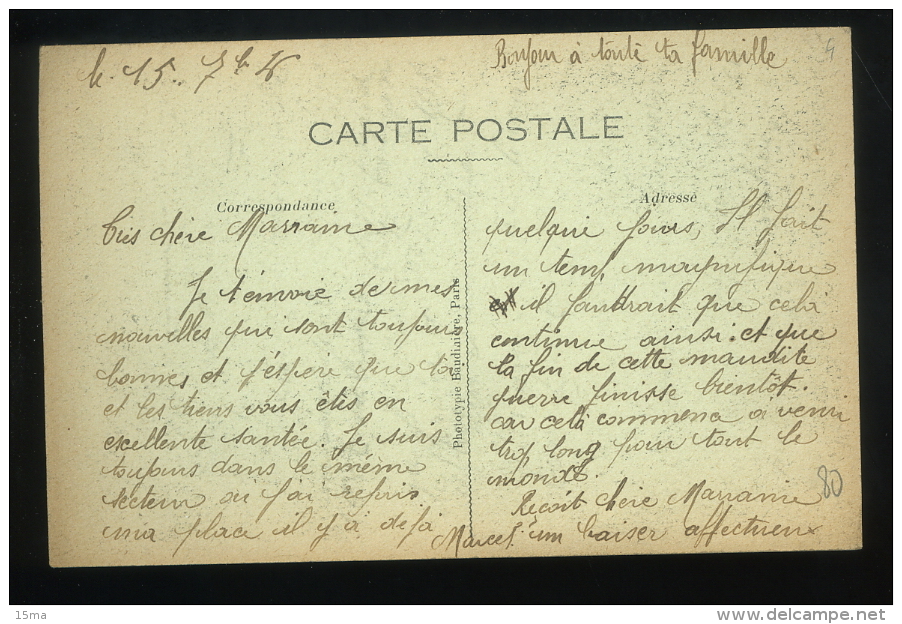 le 15. 7bre
Bonjour à toute ta famille
4
CARTE POSTALE
Correspondance
Adresse
Très chère Marraine
Je t'envoie de mes
nouvelles qui sont toujours
bonnes et j'éspère que toi
et les tiens vous êtes en
excellente santée. Je suis
toujours dans le même
secteur ou j'ai repris
ma place il y a déjà
Phototypie Baudinière, Paris
quelque jours, Il fait
un temp magnifique
il faudrait que cela
continue ainsi. et que
la fin de cette maudite
guerre finisse bientôt.
car cela commence a venir
trop long pour tout le
monde.
Reçoit chère Marraine
un baiser affectueux
Marcel
80
15ma
delcampe.net